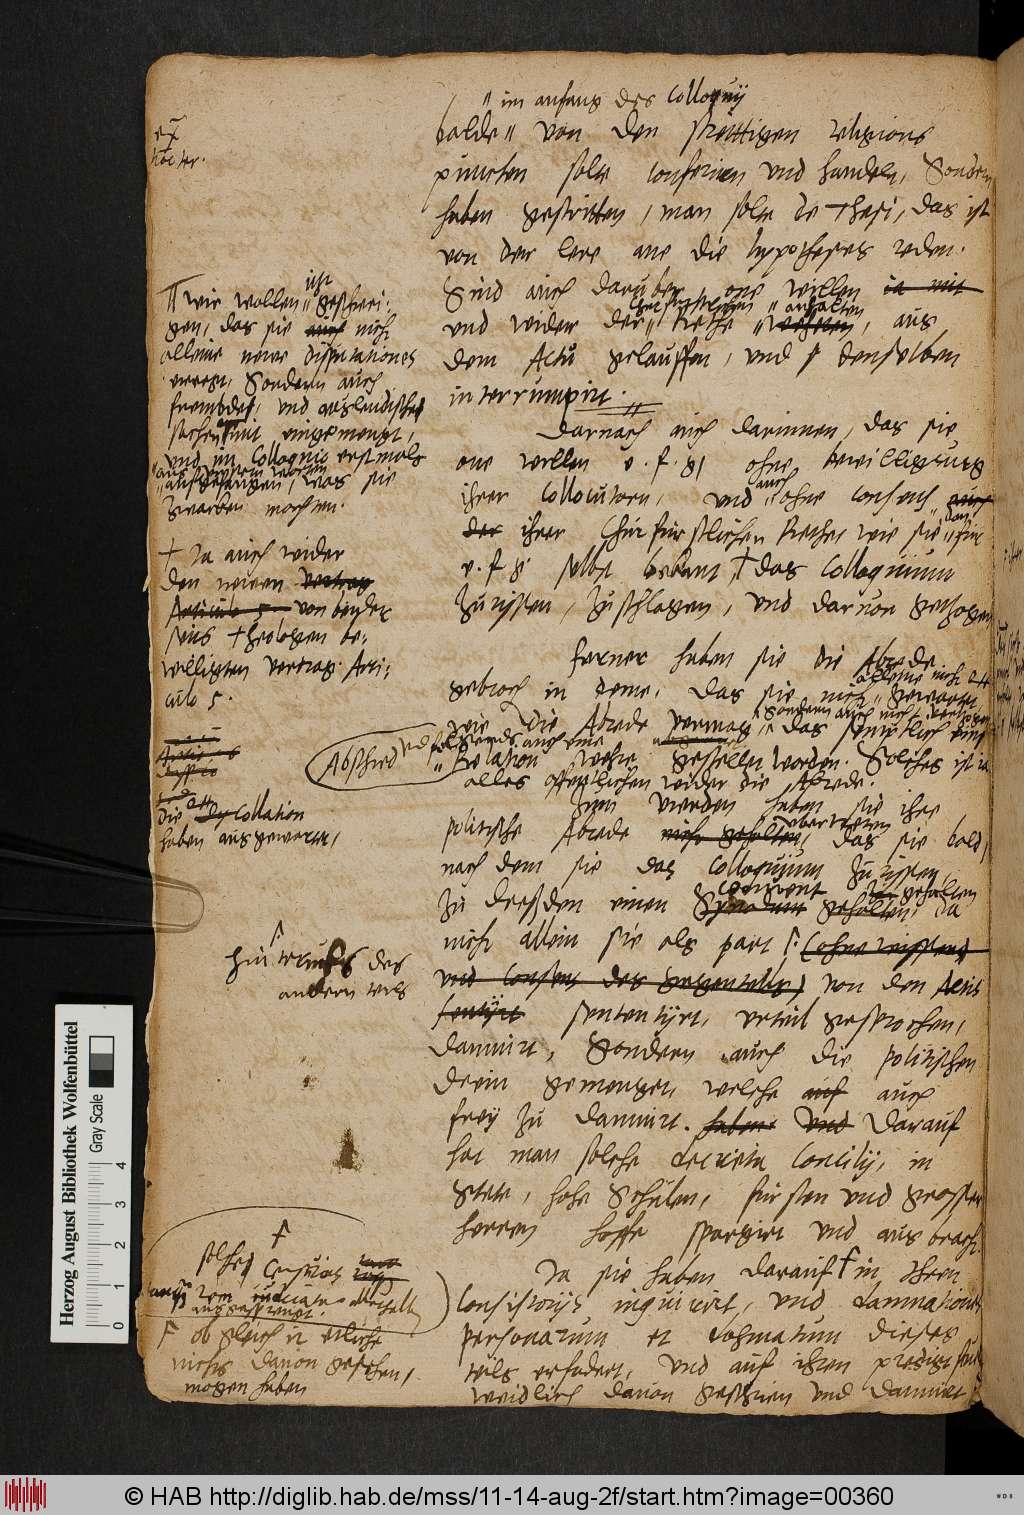 im anfang des Colloquij
balde von den streittigen religions
puncten solte conferiren und handeln, Sondern
haben gestritten, man solte de Thesi, das ist
von der lere one die hypotheses reden.
Sind auch daruber one willen ia mit
und wider der Churfurstlichen Rethe anhalten, aus
dem Actu gelauffen, und denselben
interrumpirt.
Darnach auch darinnen, das sie
one willen e. f. g. ohne bewilligung
ihrer Collocutorn, und auch ohne consens
der ihrer Churfurstlichen Rethe, wie sie fur
e. f. g. selbst bekant, das Colloquium
zurissen, zuschlagen, und daruon gezogen
Ferner haben sie die Abrede
gebroch in deme, das sie nicht
wie die Abrede vermag, das
Relation gestellet worden. Solches ist ia
alles offentlichen wider die Abrede.
Zum vierden haben sie ihre
politische Abrede nicht gehalten, ubertretten das sie bald,
nach dem sie das Colloquium zurissen,
zu Dresden einen Synodum Convent gehalten, Da
nicht allein sie als part (ohne wissen
und consens des gegenteils) von den Actis
sententijrt, urteil gesprochen,
damnirt, Sondern auch die politischen
drein gemenget, welche auch auch
frey zu damnirt. haben und Darauf
hat man solche decreta Concilij, in
Stete, hohe Schulen, fursten und grosser
herren hoffe spargirt und ausbracht.
Ja sie haben darauf in ihren
Consistorijs inquirirt, und damnationes
personarum et dogmatum dieses
teils erfodert, und auf ihren predigt
weidlich dauon geschrien und damnirt
wir wollen itzt geschwei:
gen, das sie auch nicht
alleine newe disputationes
erregt, Sondern auch
frembdes, und auslendisches
sachen mit eingemengt,
und im Colloquio erstmals
aufgefangen, was sie
zwacken mochten.
† Ja auch wider
den newen vertrag
Articulo 5 von beyder
seits Theologen be:
willigten vertrag. Arti:
culo 5.
Abschied
die Collation
haben ausgewart,
hinterrucks des
andern teils
solches Censuren
ob gleich etliche
nichts dauon gesehen,
mogen haben
Herzog August Bibliothek Wolfenbüttel
Gray Scale
0 1 2 3 4
© HAB http://diglib.hab.de/mss/11-14-aug-2f/start.htm?image=00360